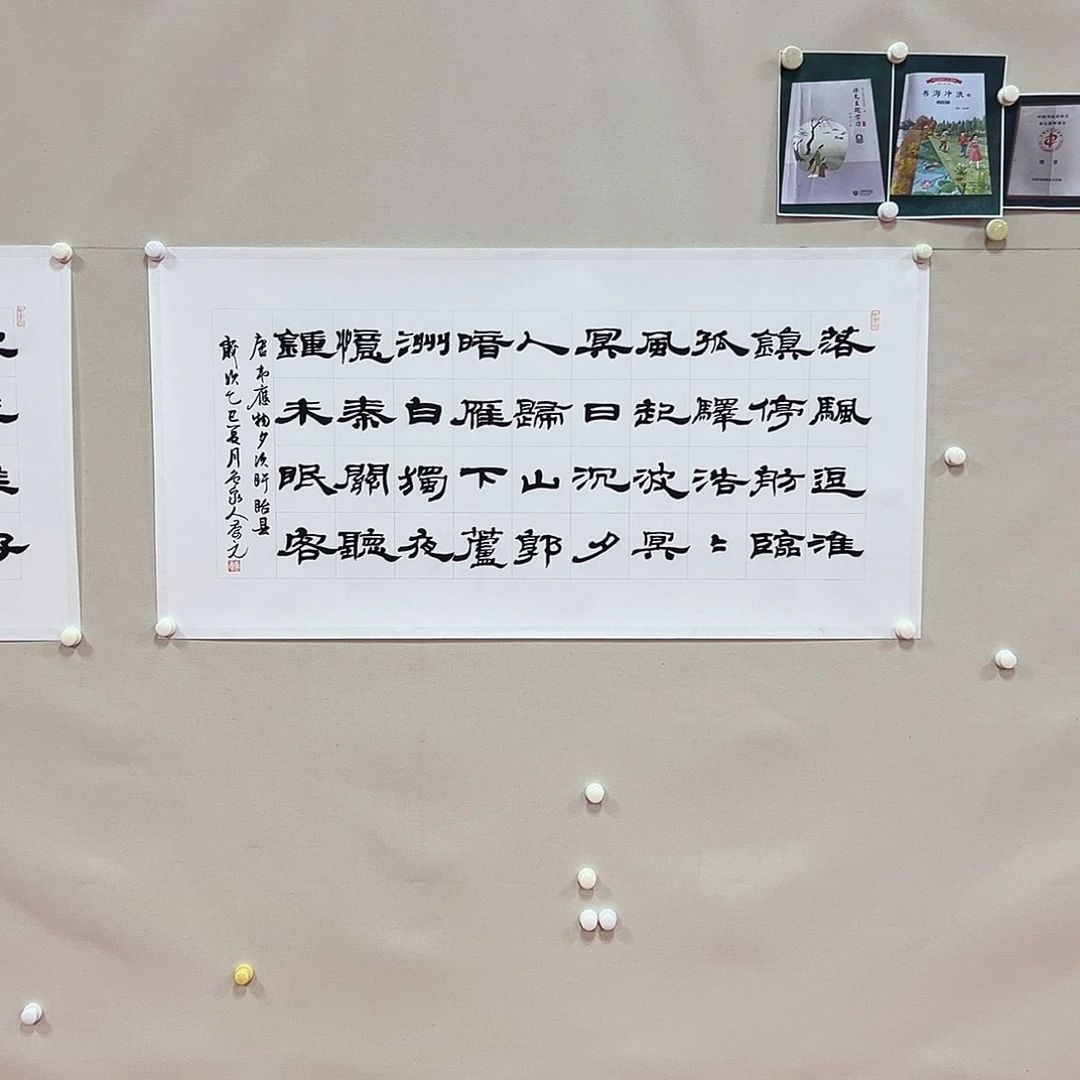 语文主题学习
书海冲浪
落颿逗淮
鎮停舫臨
孤驛浩〻
風起波冥
冥日沉夕
人歸山郭
暗雁下蘆
洲白獨夜
憶秦關聽
鍾未眠客
唐韦應物夕次盱眙县
歲次乙巳夏月